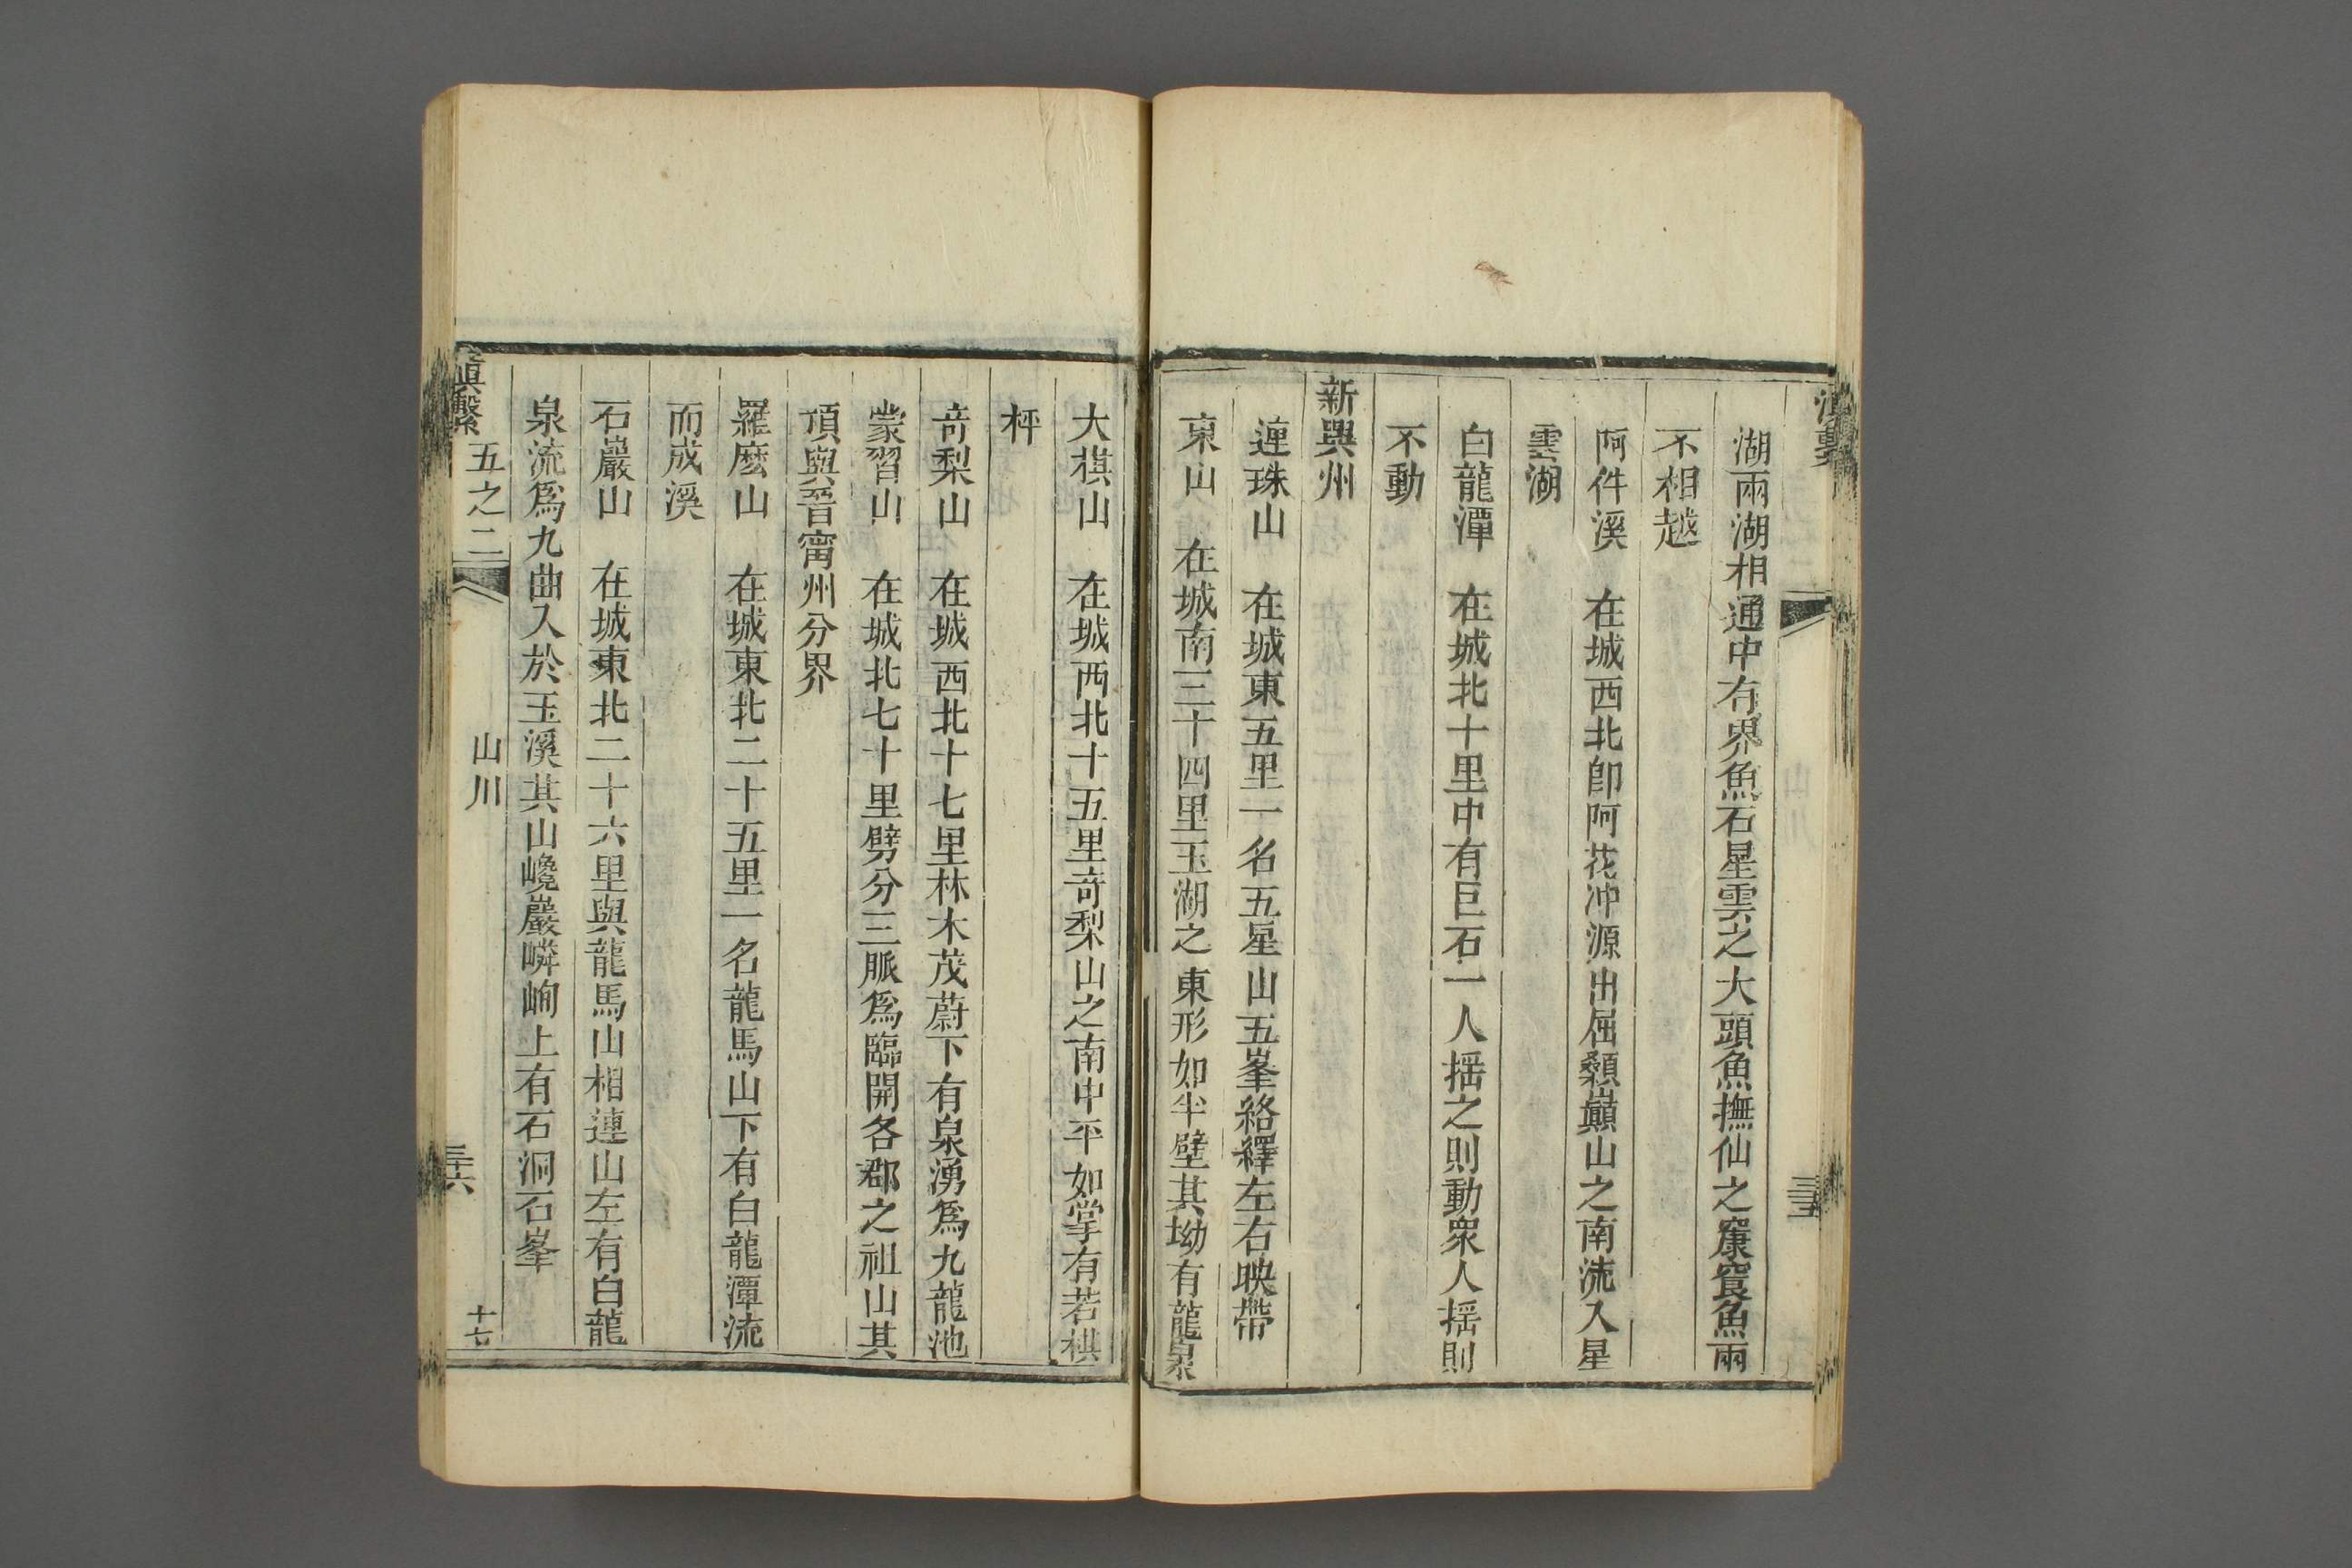 湖兩湖相通中有界魚石星雲之大頭魚撫仙之䗉䱀魚兩
不相越
阿件溪　在城西北卽阿花冲源出屈顙巔山之南流入星
雲湖
白龍潭　在城北十里中有巨石一人揺之則動眾人揺則
不動
新興州
連珠山　在城東五里一名五星山五峯絡繹左右映帶
東山　在城南三十四里玉湖之東形如半壁其坳有龍泉
大棋山　在城西北十五里竒梨山之南中平如掌有若棋
枰
竒梨山　在城西北十七里林木茂蔚下有泉湧爲九龍池
蒙習山　在城北七十里劈分三脈爲臨開各郡之祖山其
頂與晉甯州分界
羅麽山　在城東北二十五里一名龍馬山下有白龍潭流
而成溪
石巖山　在城東北二十六里與龍馬山相連山左有白龍
泉流爲九曲入於玉溪其山巉巖嶙峋上有石洞石峯
滇繫　五之二　山川　三十六　十六